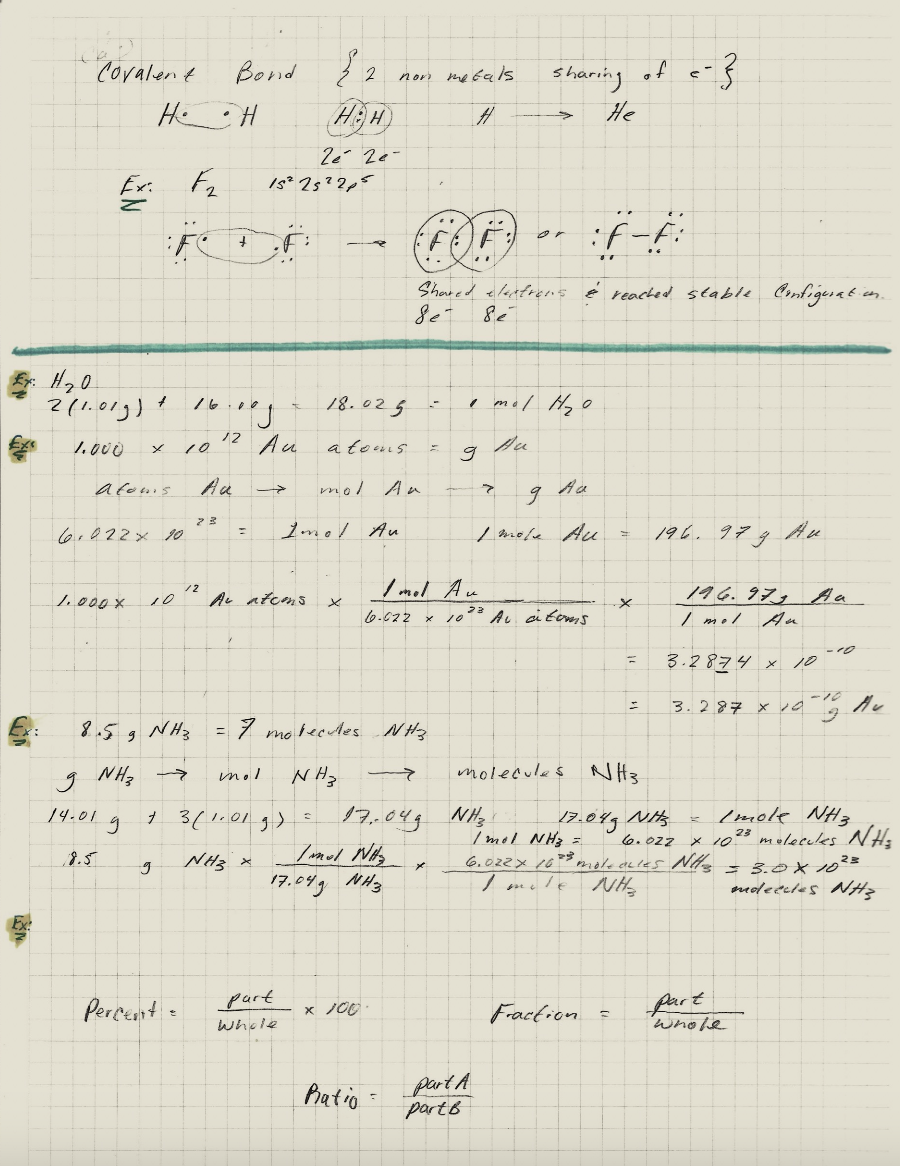 Covalent Bond { 2 non metals sharing of e⁻ }
H· ·H H:H H → He
2e⁻ 2e⁻
Ex: F₂ 1s² 2s² 2p⁵
:F· + ·F: → :F:F: or :F–F:
Shared electrons & reached stable Configuration.
8e⁻ 8e⁻
Ex: H₂O
2(1.01g) + 16.00g = 18.02g = 1 mol H₂O
Ex: 1.000 × 10¹² Au atoms = g Au
atoms Au → mol Au → g Au
6.022 × 10²³ = 1mol Au 1 mole Au = 196.97g Au
1.000 × 10¹² Au atoms × 1 mol Au / 6.022 × 10²³ Au atoms × 196.97g Au / 1 mol Au
= 3.2874 × 10⁻¹⁰
= 3.287 × 10⁻¹⁰ g Au
Ex: 8.5 g NH₃ = ? molecules NH₃
g NH₃ → mol NH₃ → molecules NH₃
14.01 g + 3(1.01 g) = 17.04g NH₃ 17.04g NH₃ = 1mole NH₃
1mol NH₃ = 6.022 × 10²³ molecules NH₃
8.5 g NH₃ × 1 mol NH₃ / 17.04g NH₃ × 6.022 × 10²³ molecules NH₃ / 1 mole NH₃ = 3.0 × 10²³
molecules NH₃
Ex:
Percent = part / whole × 100 Fraction = part / whole
Ratio = part A / part B